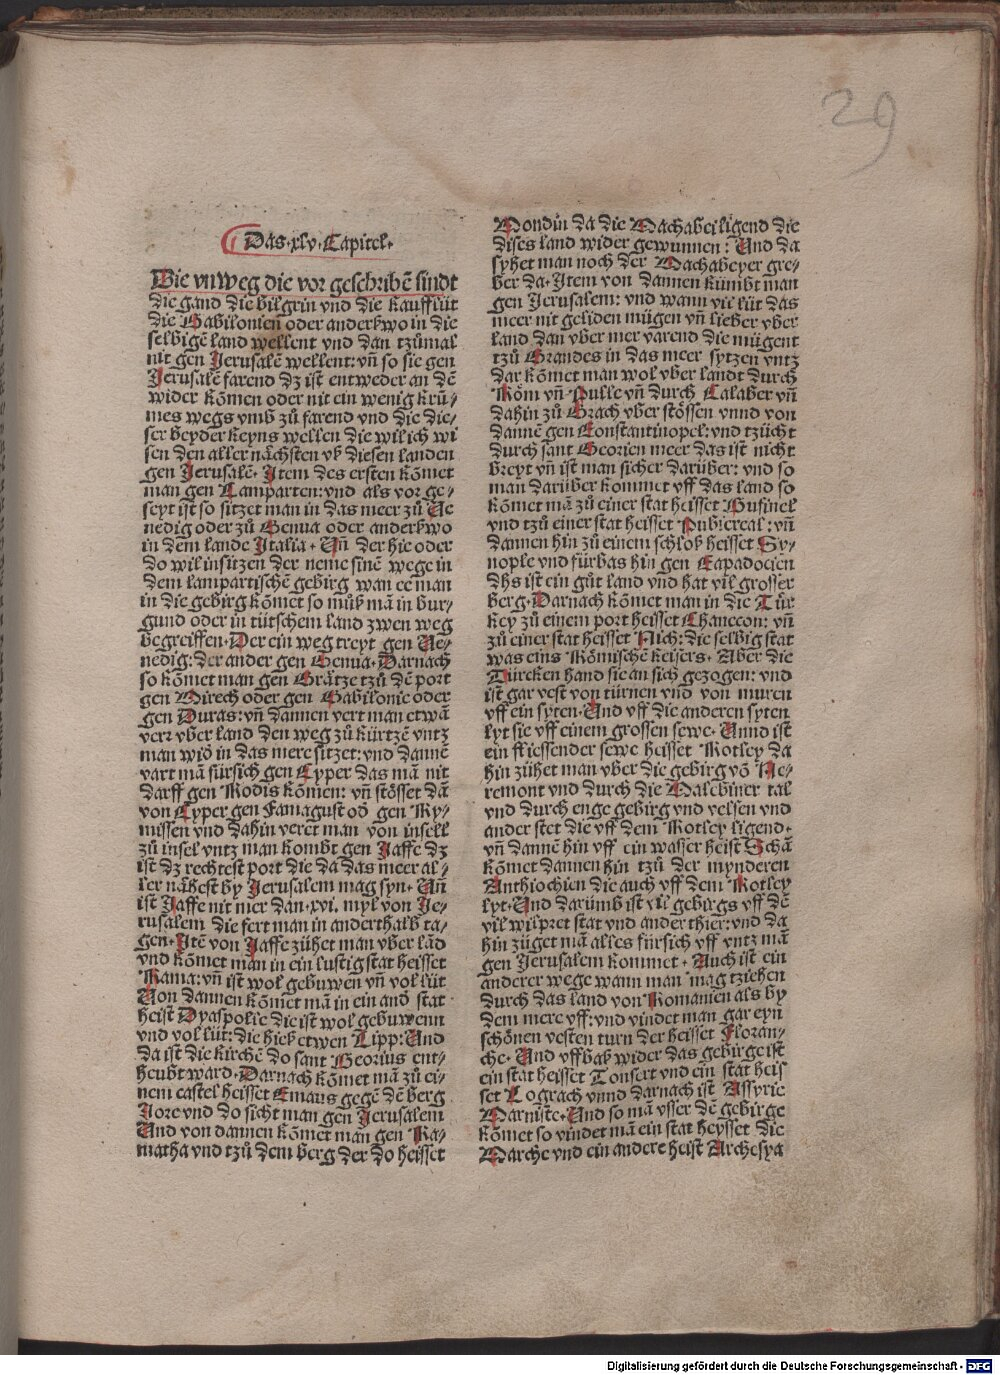 29
Das·xlv·Capitel·
Die vnweg die vor geschribē sindt
die gand die bilgrin vnd die kaufflüt
die Babilonien oder anderßwo in die
selbigē land wellent vnd dan tzūmal
nit gen Jerusalē wellent: vñ so sie gen
Jerusalē farend dz ist entweder an dē
wider kōmen oder nit ein wenig krū⸗
mes wegs vmb zū farend vnd die die⸗
ser beyder keyns wellen die wil ich wi
sen den aller nächsten vß diesen landen
gen Jerusalē· Item des ersten kōmet
man gen Lamparten: vnd als vor ge⸗
seyt ist so sitzet man in das meer zū Ve
nedig oder zū Genua oder anderßwo
in dem lande Italia· Vñ der hie oder
do wil insitzen der neme sinē wege in
dem lampartischē gebirg wan ee man
in die gebirg kōmet so mūß mā in bur⸗
gund oder in tütschem land zwen weg
begreiffen· Der ein weg treyt gen Ve⸗
nedig: der ander gen Genua· Darnach
so kōmet man gen Grätze tzū dē port
gen Mirech oder gen Babilonie oder
gen Duras: vñ dannen vert man etwā
verr vber land den weg zū kürtzē vntz
man wid in das mere sitzet: vnd dannē
vart mā fürsich gen Cyper das mā nit
darff gen Rodis kōmen: vñ stōsset dā
von Cyper gen Famagust od gen Ry⸗
missen vnd dahin veret man von insell
zū insel vntz man kombt gen Jaffe dz
ist dz rechtest port die da das meer al⸗
ler nähest by Jerusalem mag syn· Vñ
ist Jaffe nit mer dan·xvi·myl von Je⸗
rusalem die fert man in anderthalb ta⸗
gen· Itē von Jaffe zühet man vber lād
vnd kōmet man in ein lustig stat heisset
Rama: vñ ist wol gebuwen vñ vol lüt
Von dannen kōmet mā in ein and stat
heist Dyaspolie die ist wol gebuwenn
vnd vol lüt: die hieß etwen Lipp: Vnd
da ist die kirchē do sant Georius ent⸗
heubt ward· Darnach kōmet mā zū ei⸗
nem castel heisset Emaus gegē dē berg
Jore vnd do sicht man gen Jerusalem
Vnd von dannen kōmet man gen Ra⸗
matha vnd tzū dem berg der do heisset
Mondin da die Machabei ligend die
dises land wider gewunnen: Vnd da
syhet man noch der Machabeyer gre⸗
ber da· Item von dannen kümbt man
gen Jerusalem: vnd wann vil lüt das
meer nit geliden mügen vñ lieber vber
land dan vber mer varend die mügent
tzū Brandes in das meer sytzen vntz
dar kōmet man wol vber landt durch
Rōm vñ Pulle vñ durch Calaber vñ
dahin zū Grach vber stōssen vnnd von
dannē gen Constantinopel: vnd tzücht
durch sant Georien meer das ist nicht
breyt vñ ist man sicher darüber: vnd so
man darüber kommet vff das land so
kōmet mā zū einer stat heisset Businel
vnd tzū einer stat heisset Pubiereal: vñ
dannen hin zū einem schloß heisset Sy⸗
nople vnd fürbas hin gen Capadocien
dhs ist ein gūt land vnd hat vil grosser
berg· Darnach kōmet man in die Tür
key zū einem port heisset Chaneeon: vñ
zū einer stat heisset Nich: die selbig stat
was eins Rōmischē keisers· Aber die
Türcken hand sie an sich gezogen: vnd
ist gar vest von türnen vnd von muren
vff ein syten· Vnd vff die anderen syten
lyt sie vff einem grossen sewe· Vnnd ist
ein fliessender sewe heisset Rotley da
hin zühet man vber die gebirg vō Ne⸗
remont vnd durch die Malebiner tal
vnd durch enge gebirg vnd velsen vnd
ander stet die vff dem Rotley ligend·
vñ dannē hin vff ein wasser heist Schā
kōmet dannen hin tzū der mynderen
Anthiochien die auch vff dem Rotley
lyt· Vnd darūmb ist vil gebirgs vff dē
vil wilpret stat vnd ander thier: vnd da
hin züget mā alles fürsich vff vntz mā
gen Jerusalem kommet· Auch ist ein
anderer wege wann man mag tziehen
durch das land von Romanien als by
dem mere vff: vnd vindet man gar eyn
schōnen vesten turn der heisset Floran⸗
che· Vnd vffbaß wider das gebirge ist
ein stat heisset Tonsert vnd ein stat heis
set Lograch vnnd darnach ist Assyrie
Marniste· Vnd so mā vsser dē gebirge
kōmet so vindet mā ein stat heysset die
Marche vnd ein andere heist Archesya
Digitalisierung gefördert durch die Deutsche Forschungsgemeinschaft - DFG